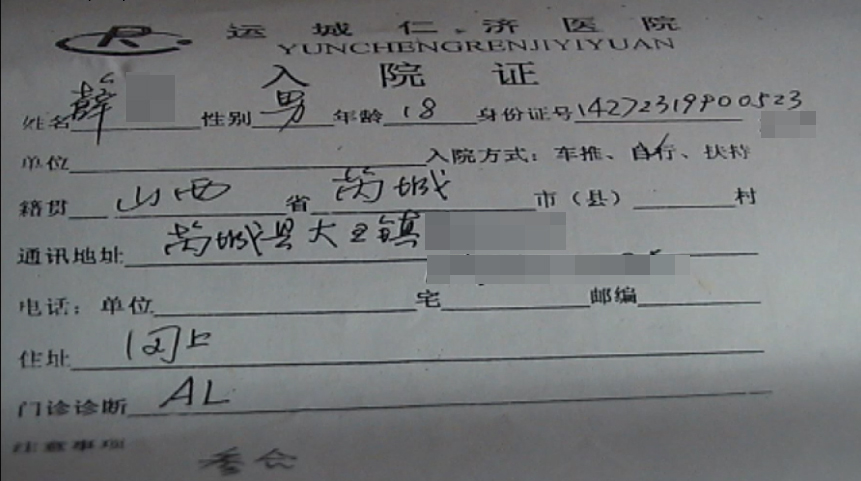 R 运城仁济医院
YUNCHENGRENJIYIYUAN
入院证
姓名 薛 性别 男 年龄 18 身份证号 14272319900523
单位 入院方式：车推、自行、扶持
籍贯 山西 省 芮城 市（县） 村
通讯地址 芮城县大王镇
电话：单位 宅 邮编
住址 同上
门诊诊断 AL
注意事项